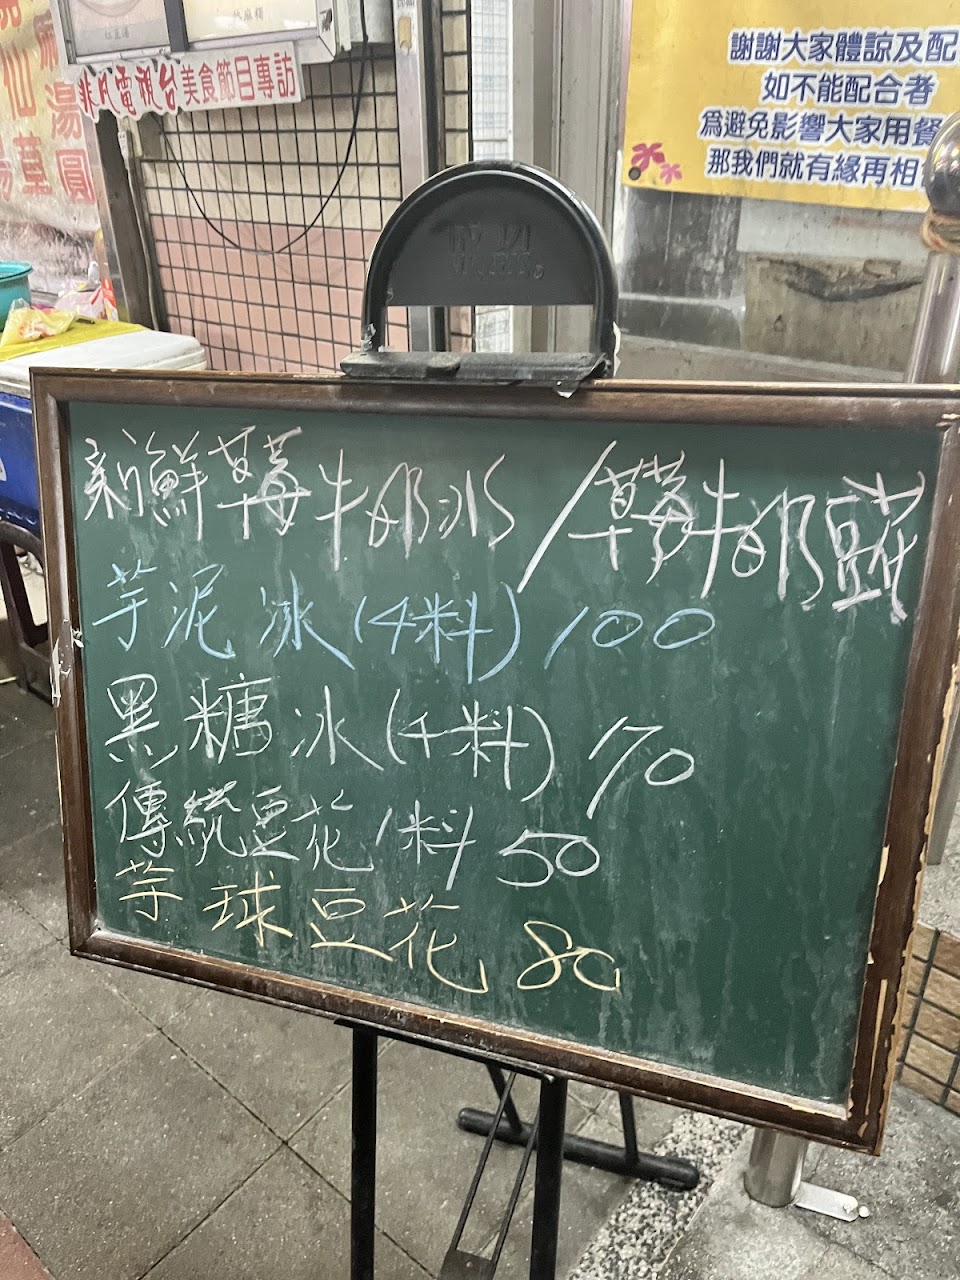 湯圓
非凡電視台美食節目專訪
謝謝大家體諒及配
如不能配合者
為避免影響大家用餐
那我們就有緣再相
新鮮草莓牛奶冰/草莓牛奶豆花
芋泥冰(4料) 100
黑糖冰(4料) 70
傳統豆花1料 50
芋球豆花 80